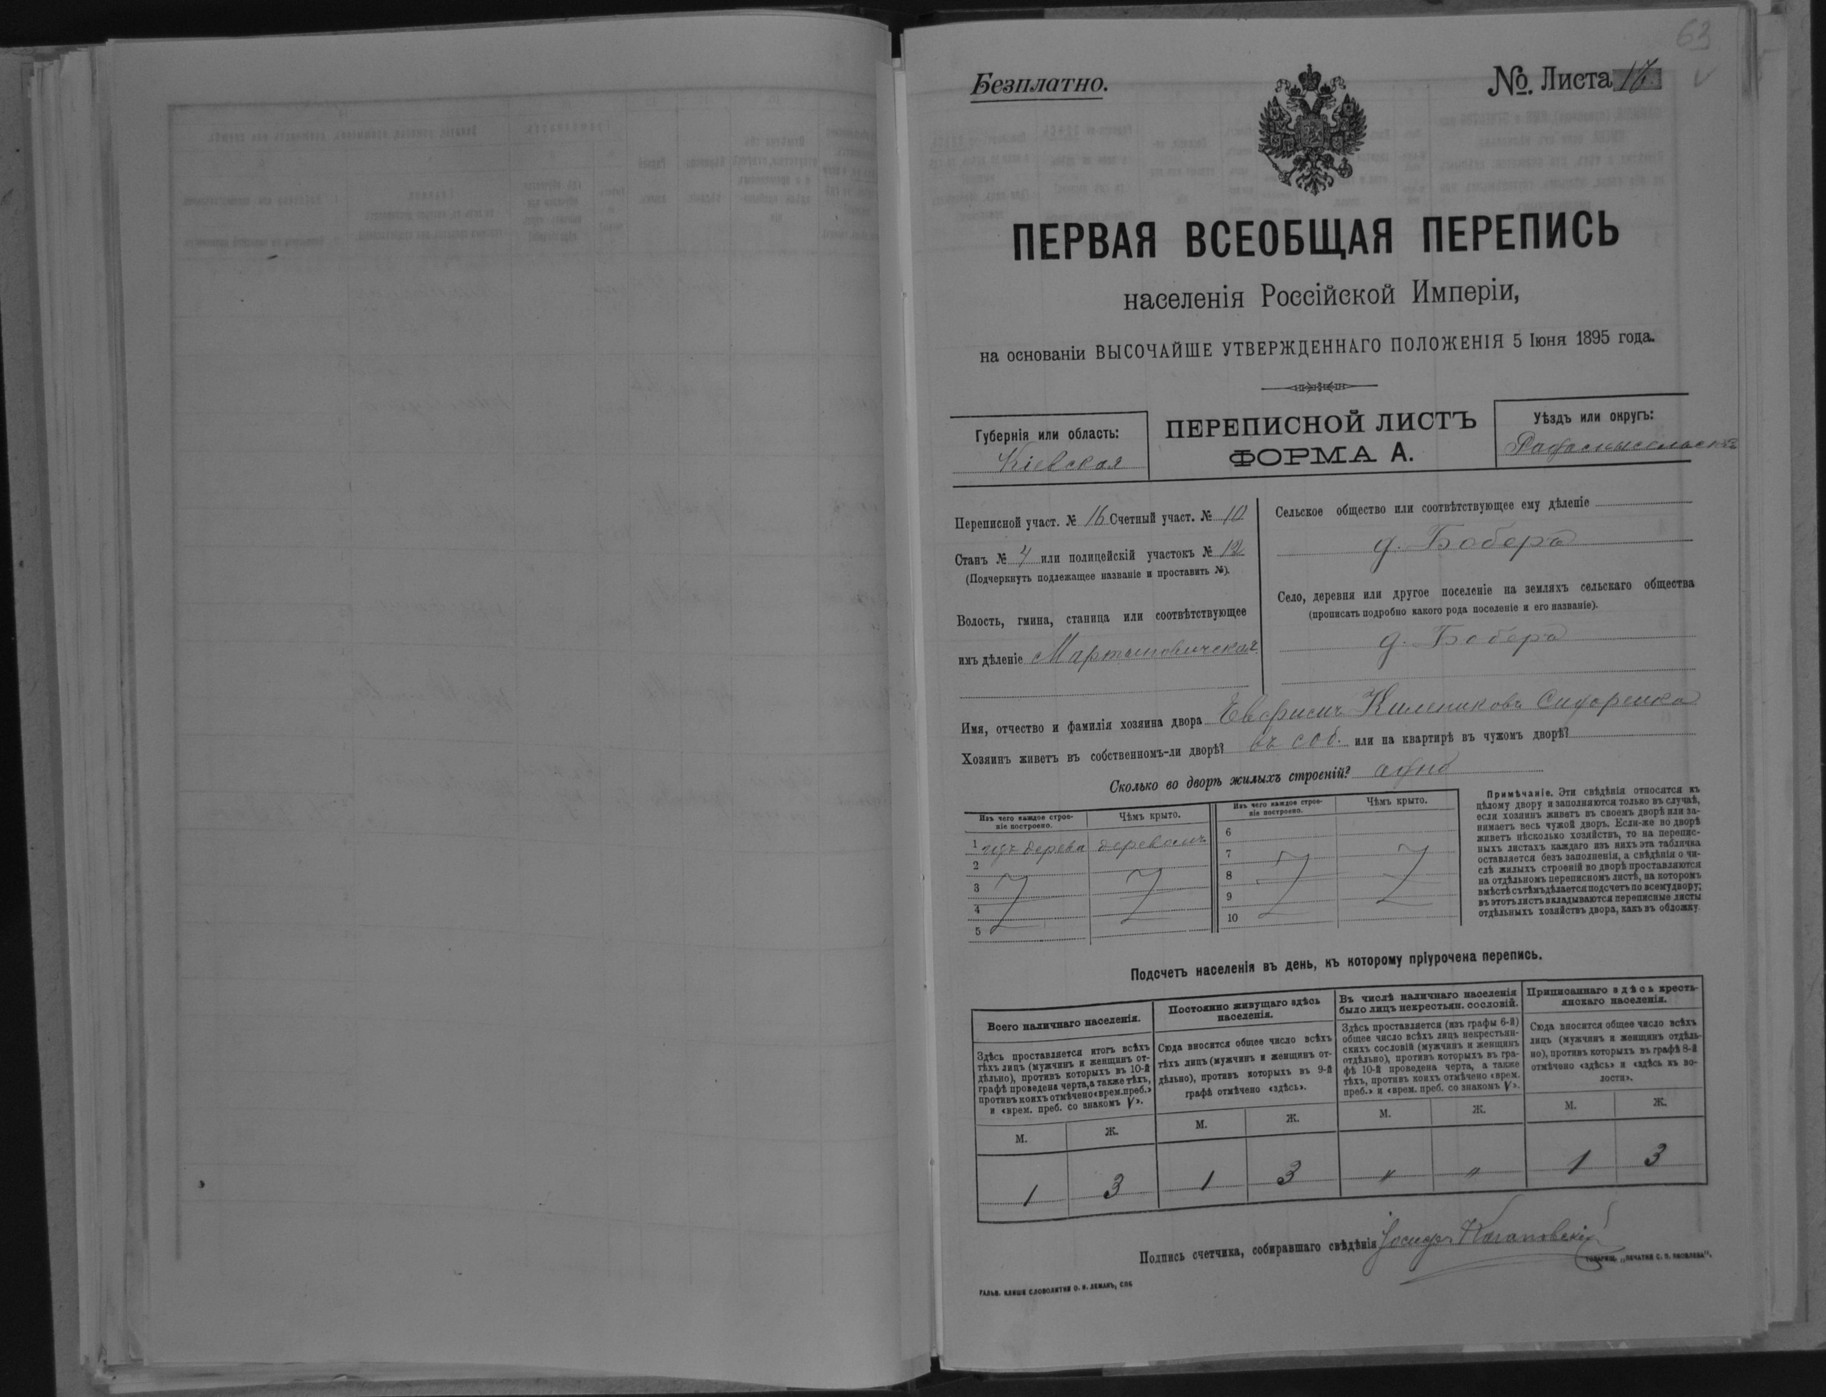 63
Безплатно.
№ Листа
ПЕРВАЯ ВСЕОБЩАЯ ПЕРЕПИСЬ
населенія Россійской Имперіи,
на основаніи ВЫСОЧАЙШЕ УТВЕРЖДЕННАГО ПОЛОЖЕНІЯ 5 Іюня 1895 года.
Губернія или область:
Кіевская
ПЕРЕПИСНОЙ ЛИСТЪ
ФОРМА А.
Уѣздъ или округъ:
Переписной участ. № 16 Счетный участ. № 10
Станъ № 4 или полицейскій участокъ № 12
(Подчеркнуть подлежащее названіе и проставить №).
Волость, гмина, станица или соотвѣтствующее
имъ дѣленіе Мартыновичская
Сельское общество или соотвѣтствующее ему дѣленіе
д. Бобера
Село, деревня или другое поселеніе на земляхъ сельскаго общества
(прописать подробно какого рода поселеніе и его названіе).
д. Бобера
Имя, отчество и фамилія хозяина двора Сидоренко
Хозяинъ живетъ въ собственномъ-ли дворѣ? въ соб. или на квартирѣ въ чужомъ дворѣ?
Сколько во дворѣ жилыхъ строеній? одно
Изъ чего каждое строеніе построено.
Чѣмъ крыто.
Изъ чего каждое строеніе построено.
Чѣмъ крыто.
1 изъ дерева деревомъ
2
3
4
5
6
7
8
9
10
Примѣчаніе. Эти свѣдѣнія относятся къ
цѣлому двору и заполняются только въ случаѣ,
если хозяинъ живетъ въ своемъ дворѣ или за-
нимаетъ весь чужой дворъ. Если-же во дворѣ
живетъ нѣсколько хозяйствъ, то на перепис-
ныхъ листахъ каждаго изъ нихъ эта табличка
оставляется безъ заполненія, а свѣдѣнія о чи-
слѣ жилыхъ строеній во дворѣ проставляются
на отдѣльномъ переписномъ листѣ, на которомъ
вмѣстѣ съ тѣмъ дѣлается подсчетъ по всему двору;
въ этотъ листъ вкладываются переписные листы
отдѣльныхъ хозяйствъ двора, какъ въ обложку.
Подсчетъ населенія въ день, къ которому пріурочена перепись.
Всего наличнаго населенія.
Здѣсь проставляется итогъ всѣхъ
тѣхъ лицъ (мужчинъ и женщинъ от-
дѣльно), противъ которыхъ въ 10-й
графѣ проведена черта, а также тѣхъ,
противъ коихъ отмѣчено «врем. преб.»
и «врем. преб. со знакомъ V».
Постоянно живущаго здѣсь
населенія.
Сюда вносится общее число всѣхъ
тѣхъ лицъ (мужчинъ и женщинъ от-
дѣльно), противъ которыхъ въ 9-й
графѣ отмѣчено «здѣсь».
Въ числѣ наличнаго населенія
было лицъ некрестьян. сословій.
Здѣсь проставляется (изъ графы 6-й)
общее число всѣхъ лицъ некрестьян-
скихъ сословій (мужчинъ и женщинъ
отдѣльно), противъ которыхъ въ гра-
фѣ 10-й проведена черта, а также
тѣхъ, противъ коихъ отмѣчено «врем.
преб.» и «врем. преб. со знакомъ V».
Приписаннаго здѣсь кресть-
янскаго населенія.
Сюда вносится общее число всѣхъ
лицъ (мужчинъ и женщинъ отдѣль-
но), противъ которыхъ въ графѣ 8-й
отмѣчено «здѣсь» и «здѣсь въ во-
лости».
М. Ж. М. Ж. М. Ж. М. Ж.
1 3 1 3 " " 1 3
Подпись счетчика, собиравшаго свѣдѣнія
ГАЛЬВ. КЛИШЕ СЛОВОЛИТНИ О. И. ЛЕМАНЪ, СПБ.
ТОВАРИЩ. „ПЕЧАТНЯ С. П. ЯКОВЛЕВА".